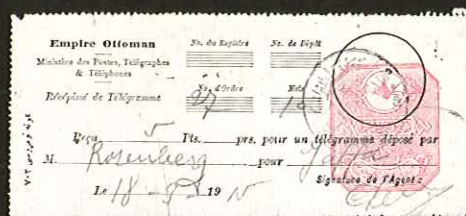 Empire Ottoman
Ministère des Postes, Télégraphes
& Téléphones
Récépissé de Télégramme
No. du Registre No. de Dépôt
No. d'Ordre Mots
27
Reçu 5 Pts. prs. pour un télégramme déposé par
M. Rosenberg pour Jaffa
Signature de l'Agent:
Le 18 191